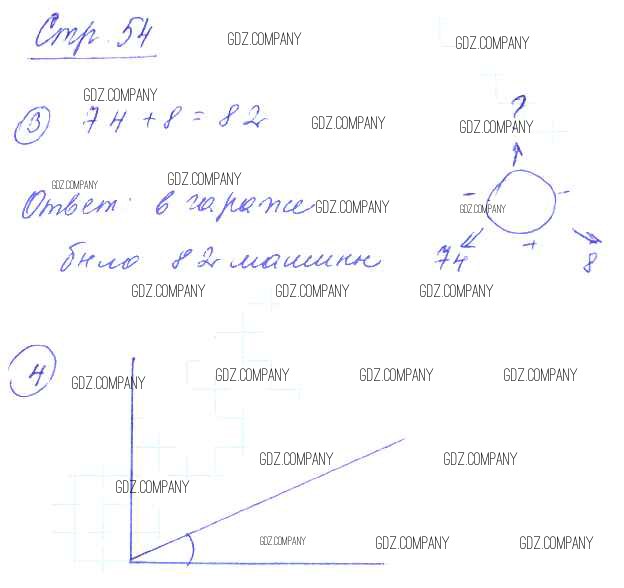 Стр. 54
GDZ.COMPANY GDZ.COMPANY
GDZ.COMPANY
3 74 + 8 = 82
GDZ.COMPANY GDZ.COMPANY
?
GDZ.COMPANY GDZ.COMPANY
Ответ: в гараже
GDZ.COMPANY GDZ.COMPANY
- -
+
было 82 машины
74 8
GDZ.COMPANY GDZ.COMPANY GDZ.COMPANY
4
GDZ.COMPANY GDZ.COMPANY GDZ.COMPANY GDZ.COMPANY
GDZ.COMPANY GDZ.COMPANY
GDZ.COMPANY
GDZ.COMPANY GDZ.COMPANY GDZ.COMPANY